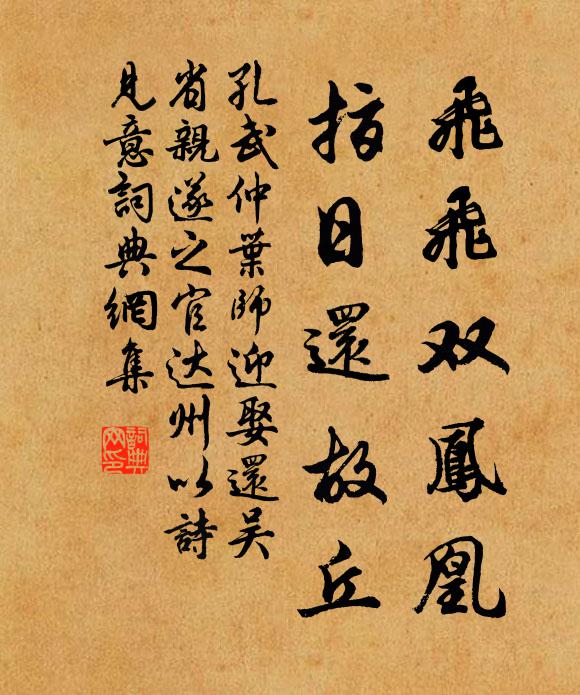 飛飛双鳳凰
指日還故丘
孔武仲葉師迎娶還吴
省親遂之官达州以詩
見意詞典網集
詞典
网印